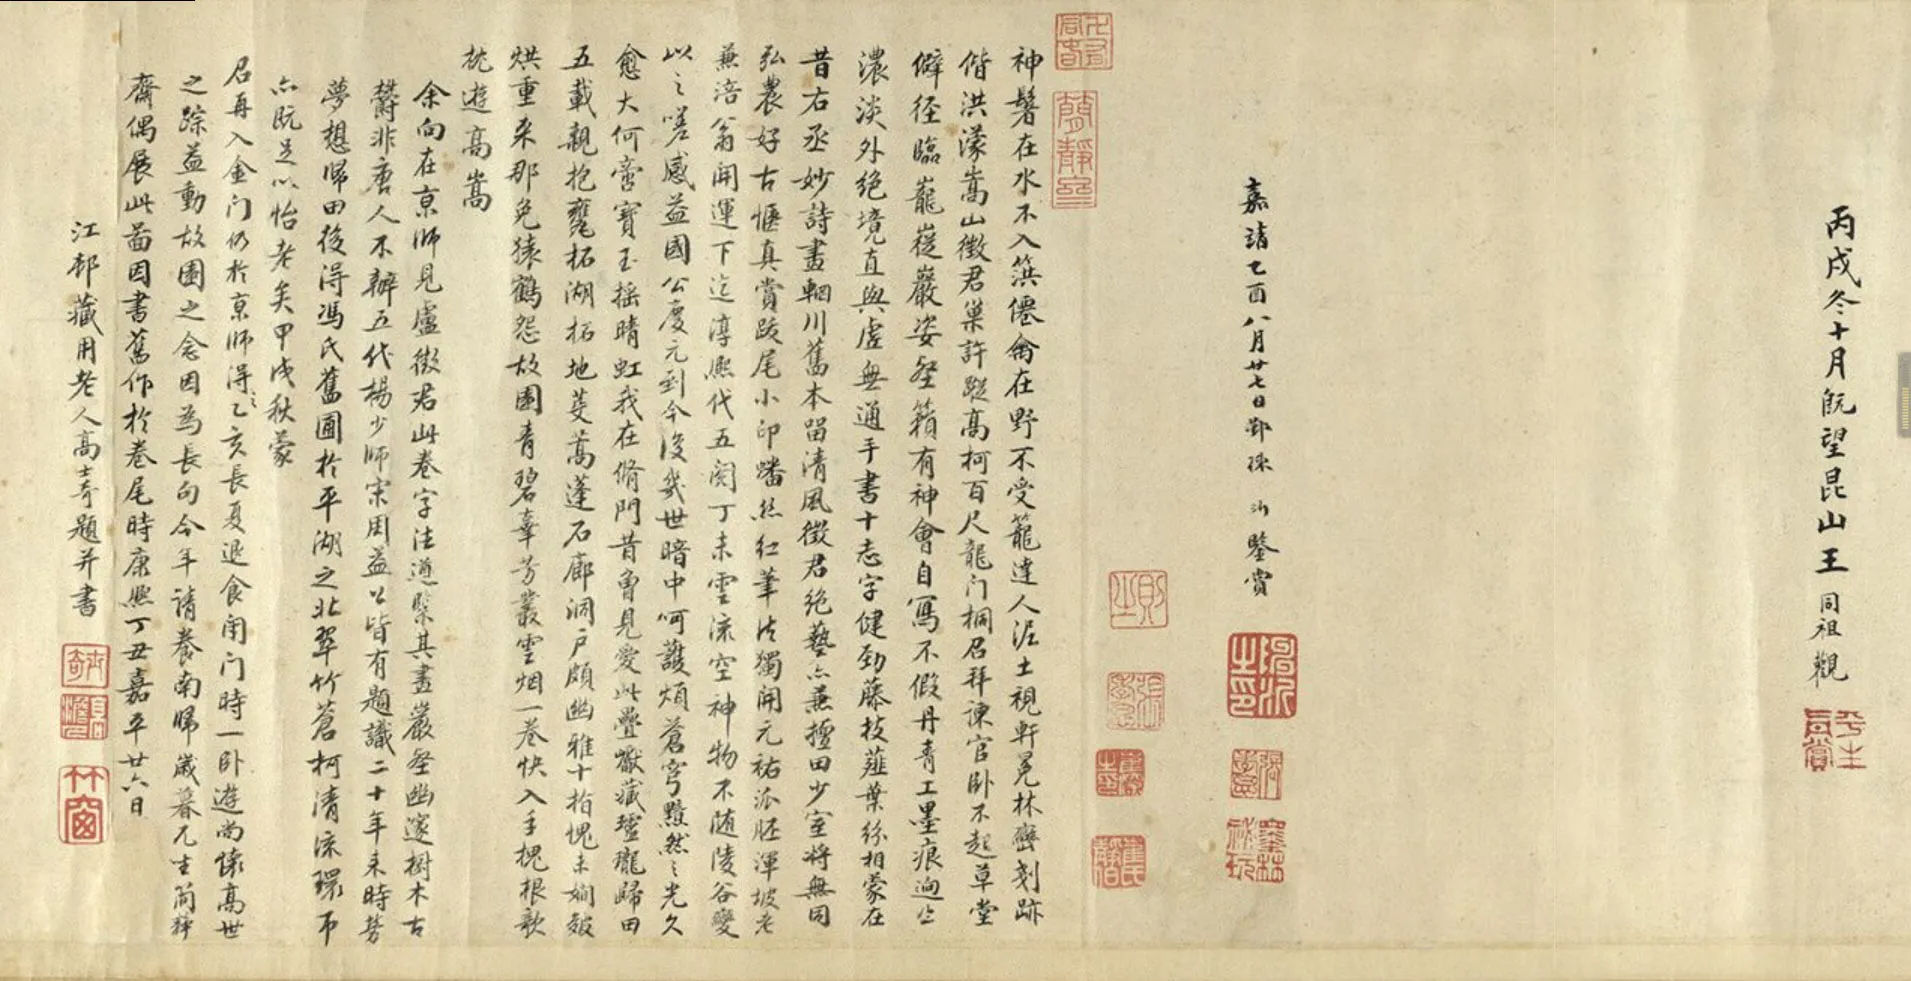 丙戌冬十月既望昆山王同祖觀
嘉靖乙酉八月廿七日鄞孫沐鑒賞
神鬐在水不入篊僊禽在野不受籠達人泥土視軒冕林巒刻跡
偕洪濛嵩山徵君巢許蹤高柯百尺龍门桐召拜諫官卧不起草堂
僻径臨巃嵸巖姿壑籟有神會自寫不假丹青工墨痕迥出
濃淡外絶境直與虛無通手書十志字健劲藤枝薤葉紛相蒙在
昔右丞妙詩畫輞川舊本留清風徵君绝藝亦兼擅田少室将無同
弘農好古惬真賞跋尾小印蟠絲红筆法獨開元祐派胚渾坡老
兼涪翁開運下迄淳熙代五閲丁未雲流空神物不随陵谷變
以之嗟感益國公慶元到今後幾世暗中呵護煩蒼穹黯然之光久
愈大何啻寶玉摇晴虹我在脩門昔曾見愛此疊巘藏瓏歸田
五載親抱甕拓湖拓地芟蒿蓬石廊洞户頗幽雅十指愧未嫻皴
烘重来那免猿鶴怨故園青碧辜芳叢雲烟一卷快入手槐根欹
枕遊高嵩
余向在京師見盧徵君此卷字法遒緊其畫巖壑幽邃樹木古
鬱非唐人不辦五代楊少師宋周益公皆有題識二十年来時勞
夢想歸田後得馮氏舊圃於平湖之北翠竹蒼柯清流環帀
亦既足以怡老矣甲戌秋蒙
召再入金门仍於京師得之乙亥長夏退食闭门時一卧遊尚懷高世
之踪益動故園之念因為長句今年請養南歸歲暮兀坐简静
齋偶展此啚因書舊作於卷尾時康熙丁丑嘉平廿六日
江邨藏用老人高士奇題并書
簡靜齋
竹窗